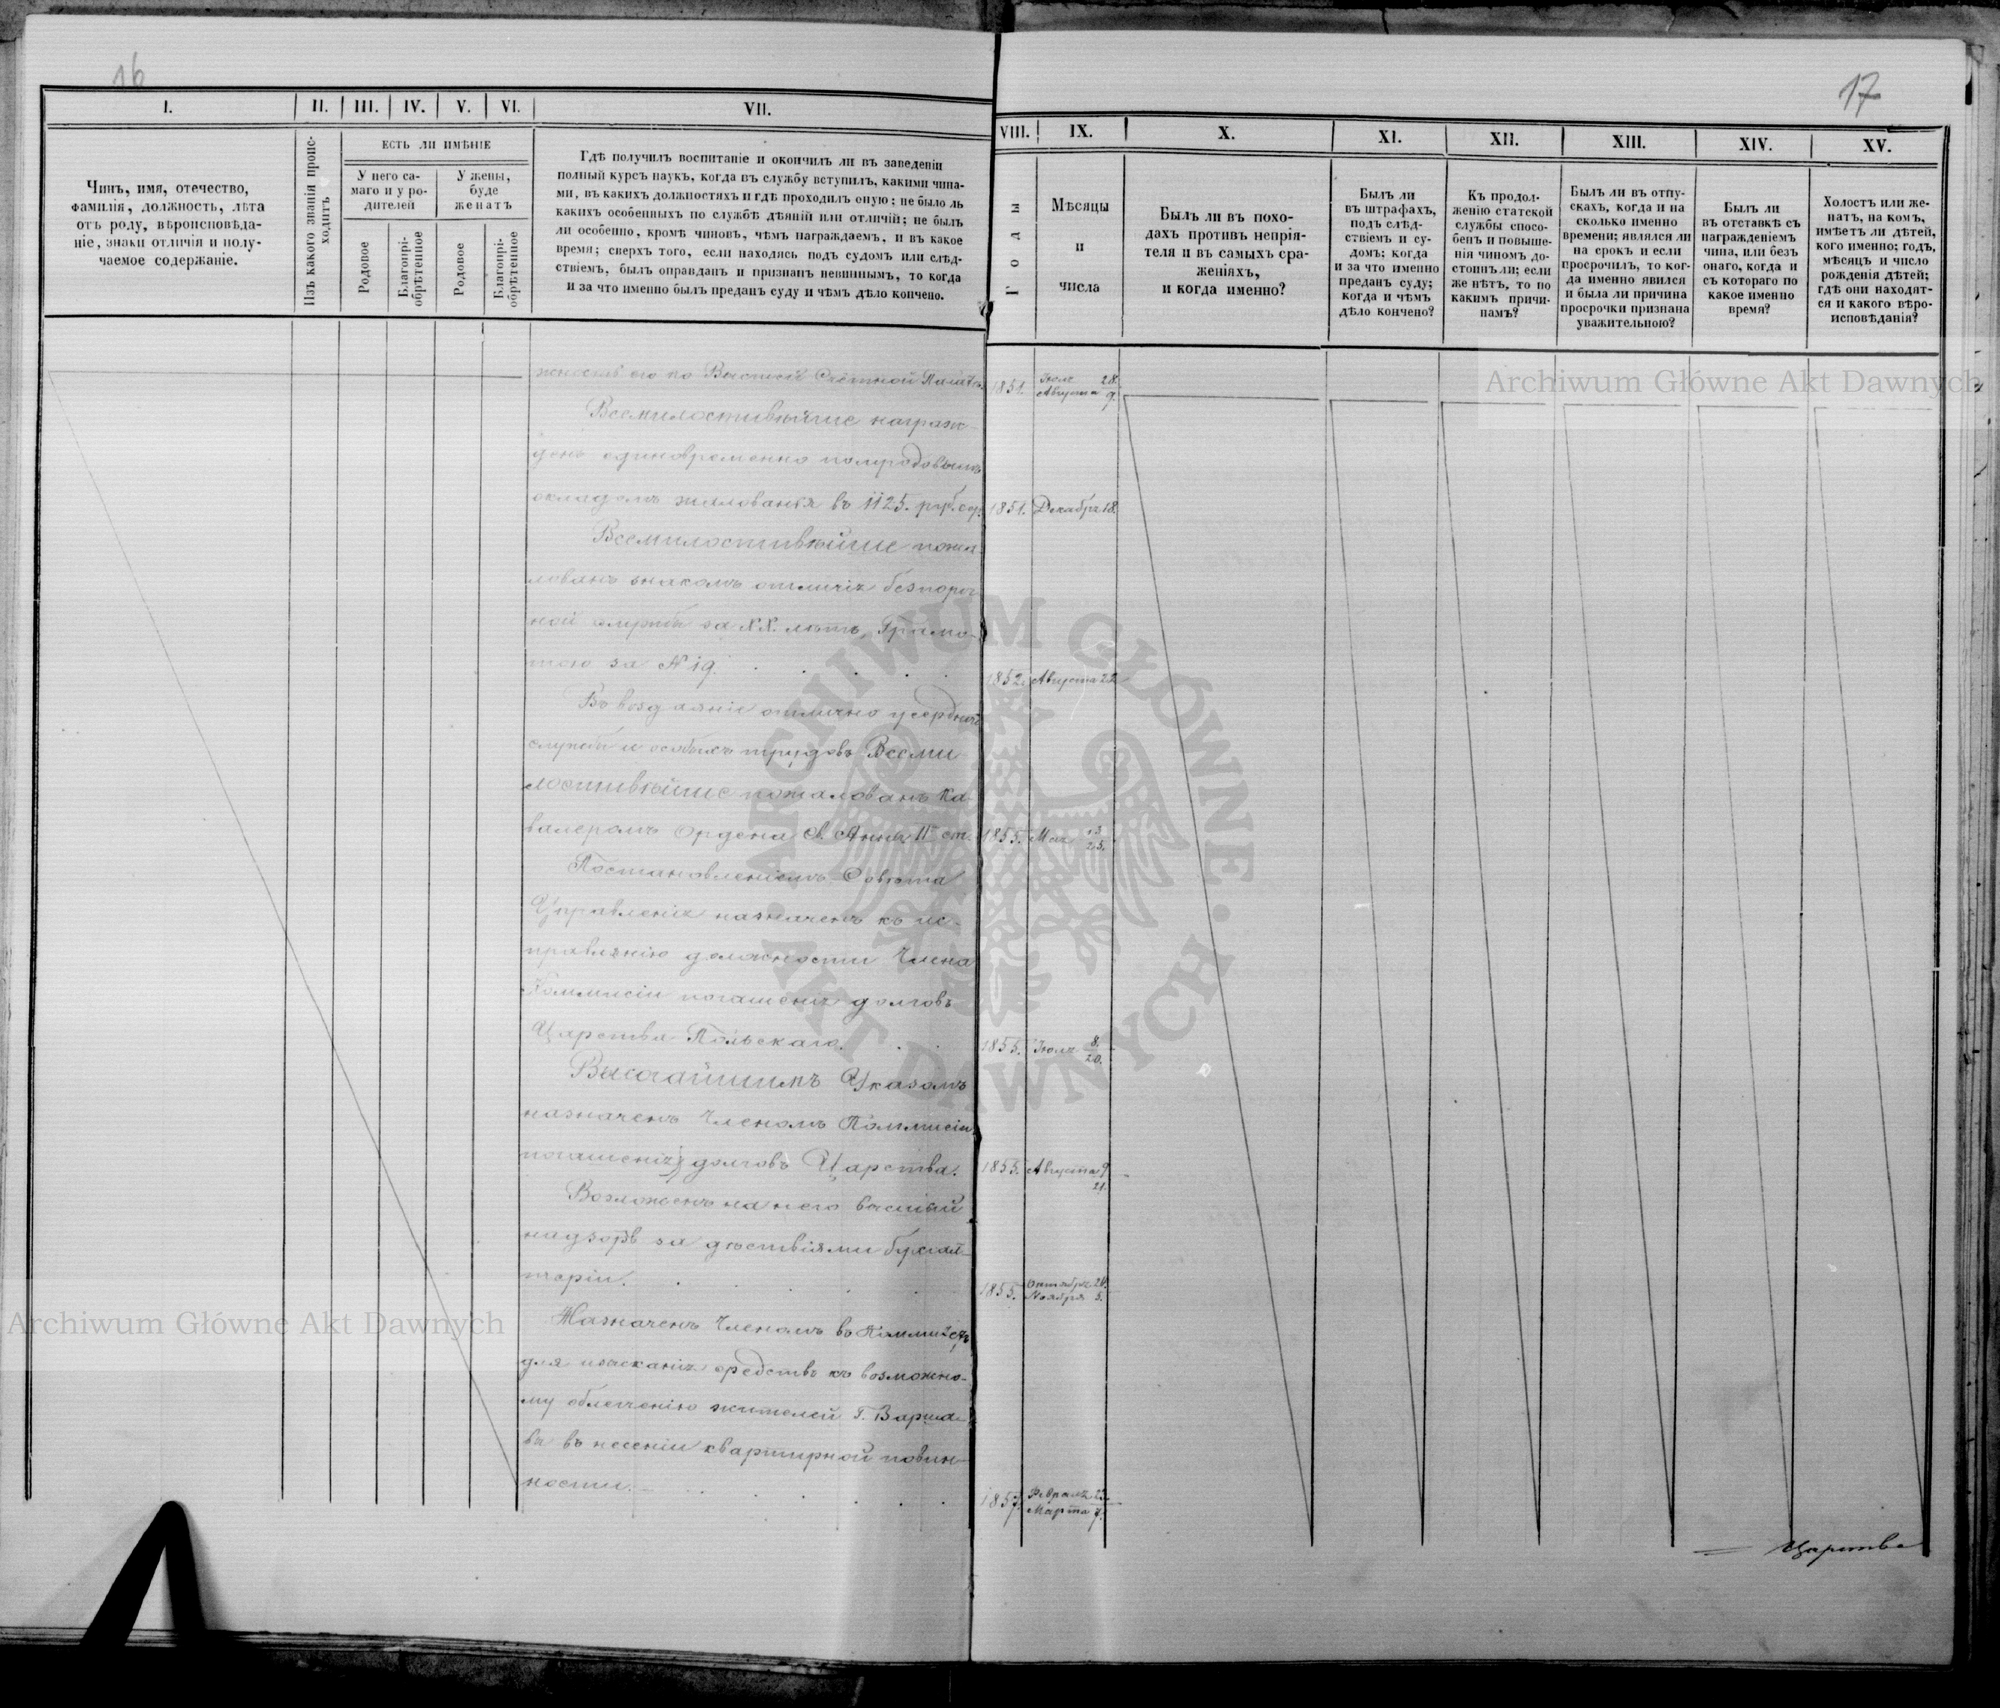 16
17
I.
II.
III.
IV.
V.
VI.
VII.
VIII.
IX.
X.
XI.
XII.
XIII.
XIV.
XV.
Чинъ, имя, отечество,
фамилія, должность, лѣта
отъ роду, вѣроисповѣда-
ніе, знаки отличія и полу-
чаемое содержаніе.
Изъ какого званія проис-
ходитъ
ЕСТЬ ЛИ ИМѢНІЕ
У него са-
маго и у ро-
дителей
У жены,
буде
женатъ
Родовое
Благопрі-
обрѣтенное
Родовое
Благопрі-
обрѣтенное
Гдѣ получилъ воспитаніе и окончилъ ли въ заведеніи
полный курсъ наукъ, когда въ службу вступилъ, какими чина-
ми, въ какихъ должностяхъ и гдѣ проходилъ оную; не было ль
какихъ особенныхъ по службѣ дѣяній или отличій; не былъ
ли особенно, кромѣ чиновъ, чѣмъ награждаемъ, и въ какое
время; сверхъ того, если находясь подъ судомъ или слѣд-
ствіемъ, былъ оправданъ и признанъ невиннымъ, то когда
и за что именно былъ преданъ суду и чѣмъ дѣло кончено.
Годы
Мѣсяцы
и
числа
Былъ ли въ похо-
дахъ противъ непрія-
теля и въ самыхъ сра-
женіяхъ,
и когда именно?
Былъ ли
въ штрафахъ,
подъ слѣд-
ствіемъ и су-
домъ; когда
и за что именно
преданъ суду;
когда и чѣмъ
дѣло кончено?
Къ продол-
женію статской
службы спосо-
бенъ и повыше-
нія чиномъ до-
стоинъ ли; если
же нѣтъ, то по
какимъ причи-
намъ?
Былъ ли въ отпу-
скахъ, когда и на
сколько именно
времени; являлся ли
на срокъ и если
просрочилъ, то ког-
да именно явился
и была ли причина
просрочки признана
уважительною?
Былъ ли
въ отставкѣ съ
награжденіемъ
чина, или безъ
онаго, когда и
съ котораго по
какое именно
время?
Холостъ или же-
натъ, на комъ,
имѣетъ ли дѣтей,
кого именно; годъ,
мѣсяцъ и число
рожденія дѣтей;
гдѣ они находят-
ся и какого вѣро-
исповѣданія?
его по Высшей Счетной Палатѣ. 1851. Іюля 28. Августа 9.
Всемилостивѣйше награж-
денъ единовременно полугодовымъ
окладомъ жалованья въ 1125. руб. сер. 1851. Декабря 18.
Всемилостивѣйше пожа-
лованъ знакомъ отличія безпороч-
ной службы за XX. лѣтъ, Грамо-
тою за № 19. 1852. Августа 22
Въ воздаяніе отлично усердной
службы и особыхъ трудовъ Всеми-
лостивѣйше пожалованъ Ка-
валеромъ Ордена Св. Анны II ст. 1855. Мая 13. 25.
Постановленіемъ Совѣта
Управленія назначенъ къ ис-
правленію должности Члена
Коммисіи погашенія долговъ
Царства Польскаго. 1855. Іюля 8. 20.
Высочайшимъ Указомъ
назначенъ Членомъ Коммисіи
погашенія долговъ Царства. 1855. Августа 9 21.
Возложенъ на него высшій
надзоръ за дѣствіями бухгал-
теріи. 1855. Октября 24. Ноября 5.
Назначенъ Членомъ въ Коммисіи
для изысканія средствъ къ возможно-
му облегченію жителей Г. Варша-
вы въ несеніи квартирной повин-
ности. 1857. Февраля 23. Марта 7.
Царства
Archiwum Główne Akt Dawnych
Archiwum Główne Akt Dawnych
ARCHIWUM GŁÓWNE
AKT DAWNYCH